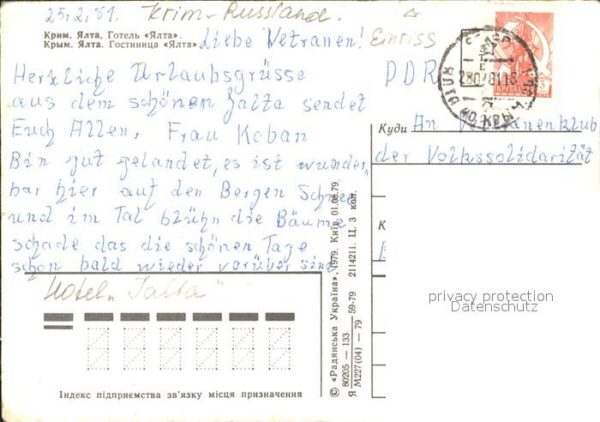 25.2.81. Krim-Russland.
Крим. Ялта. Готель «Ялта».
Крым. Ялта. Гостиница «Ялта».
Liebe Vetranen!
Einriss
Herzliche Urlaubsgrüsse
aus dem schönen Jalta sendet
Euch Allen, Frau Koban
Bin gut gelandet, es ist wunder,
bar hier auf den Bergen Schnee
und im Tal blühn die Bäume
schade das die schönen Tage
schon bald wieder vorüber sind
Hotel „Jalta"
DDR
СССР
ПОЧТА
Куди An Vetranenklub
der Volkssolidarität
К
privacy protection
Datenschutz
Індекс підприємства зв'язку місця призначення
© «Радянська Україна», 1979. Київ 01.08.79.
80205 — 133 59-79 2114211. Ц. 3 коп.
Я М227(04) — 79